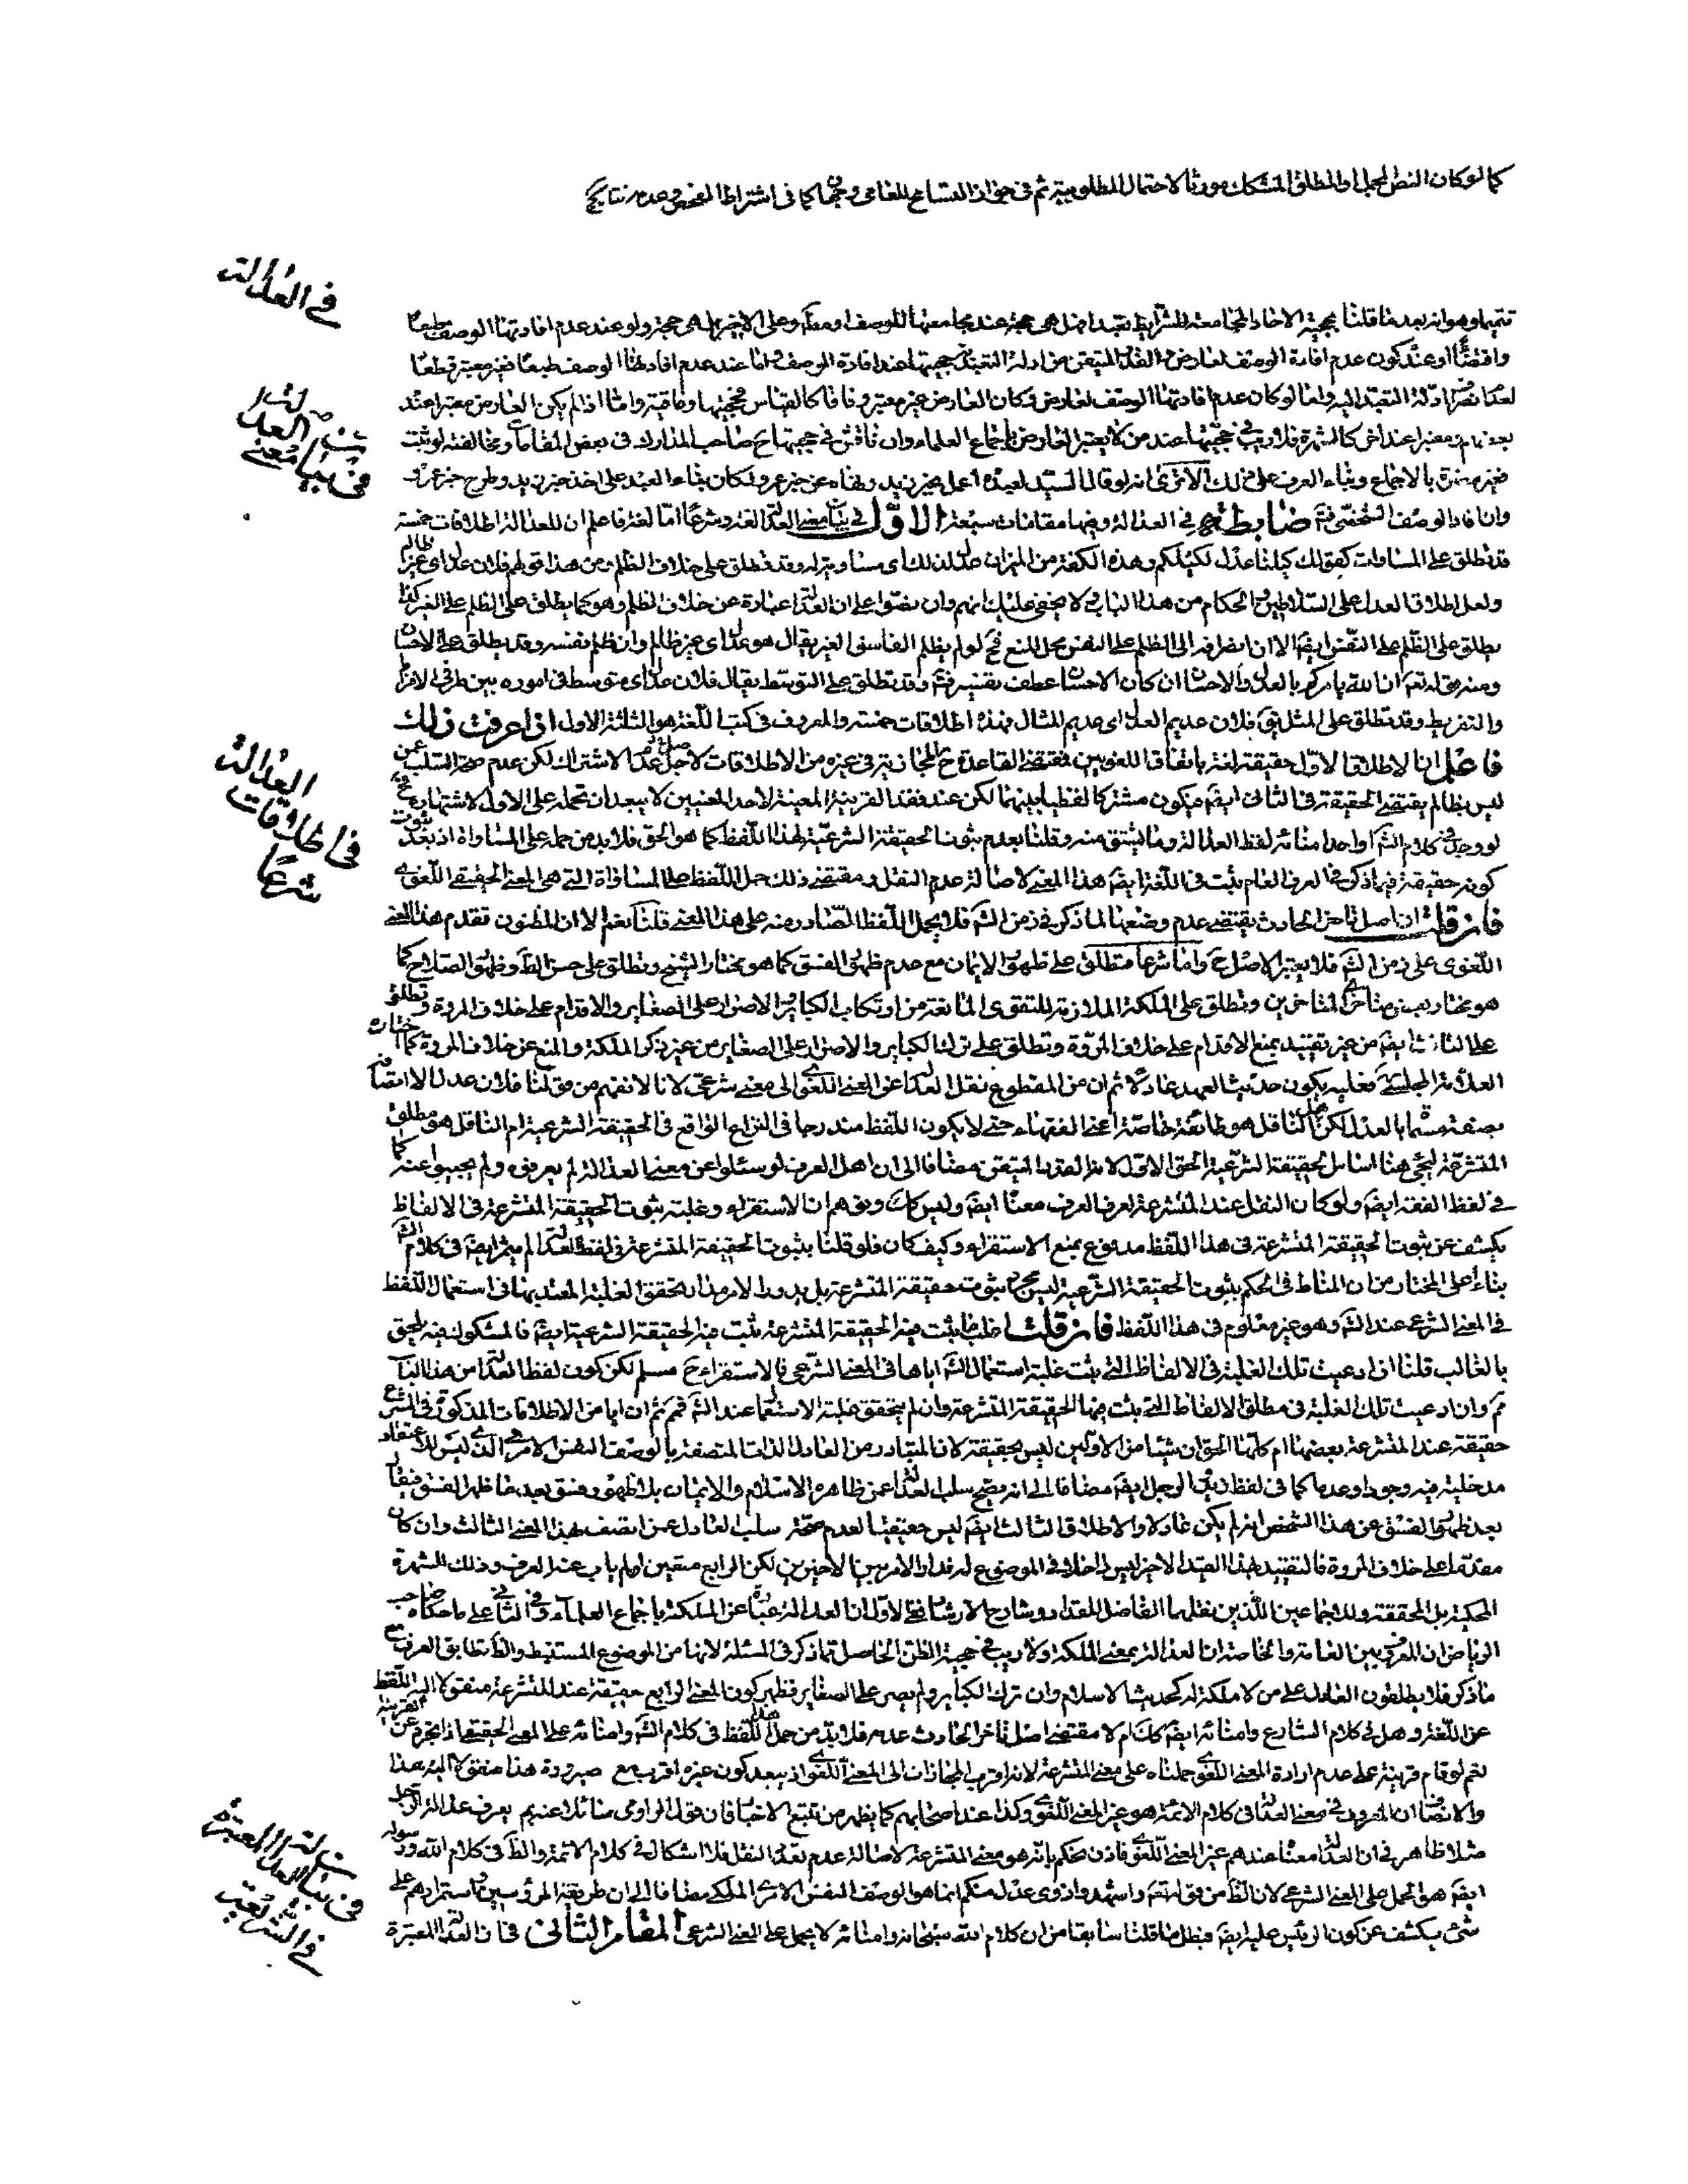 كما لو كان النص المجمل او المطلق المتشكك مورثا لاحتمال المطلوبية ثم في جواز التسامح للعامي وجهان كما في اشتراط الفحص وعدمه نتايج
في العدالة
تتميم وهو انه بعد ما قلنا بحجية الاخاد الجامعة للشرايط تعبدا فهل هي حجة عند مجامعتها للوصف او مطلقا وعلى الاخير هل هي حجة ولو عند عدم افادتها الوصف طبعا
او عند كون عدم افادة الوصف لعارض القدر المتيقن من ادلة التعبد حجيتها عند افادة الوصف واما عند عدم افادتها الوصف طبعا فغير معتبر قطعا
لعدم ادلة التعبد اليه واما لو كان عدم افادتها الوصف لعارض فكان العارض غير معتبر وفاقا كالقياس فحجيتها وفاقية واما اذا لم يكن العارض معتبرا عند
بعض معتبرا عند اخر كالشهرة فلا ريب في حجيتها عند من لا يعتبر العارض باجماع العلماء وان ناقش في حجيتها ح صاحب المدارك في بعض المقامات ومخالفته لو ثبت
غير مضرة بالاجماع وبناء العرف على ذلك الا ترى انه لو قال السيد لعبده اعمل بخبر زيد ونهاه عن خبر عمرو لكان بناء العبد على اخذ خبر زيد وطرح خبر عمرو
وان افاد الوصف الشخصي فتم ضابطة في العدالة وفيها مقامات سبعة الاول في بيان معنى العدالة لغة وشرعا اما لغة فاعلم ان للعدالة اطلاقات خمسة
في بيان معنى العدالة
قد تطلق على المساوات كقولك كيلنا عدل لكيلكم وهذه الكفة من الميزان عدل لتلك اي مساوية له وقد تطلق على خلاف الظلم ومن هذا قولهم فلان عدل اي غير ظالم
ولعل اطلاق العدل على السلاطين والحكام من هذا الباب لا يخفى عليك انهم وان نصوا على ان العدالة عبارة عن خلاف الظلم وهو كما يطلق على الظلم على الغير كذا
يطلق على الظلم على النفس ايضا الا ان انصرافه الى الظلم على النفس محل المنع فح لو لم يظلم الفاسق الغير يقال هو عدل اي غير ظالم وان ظلم نفسه وقد يطلق على الاحسان
ومنه قوله تعه ان الله يامركم بالعدل والاحسان ان كان الاحسان عطف تفسير فتم وقد تطلق على التوسط يقال فلان عدل اي متوسط في اموره بين طرفي الافراط
والتفريط وقد تطلق على المثل يق فلان عديم العدل اي عديم المثال فهذه اطلاقات خمسة والمعروف في كتب اللغة هو الثلثة الاول اذا عرفت ذلك
فاعلم ان الاطلاق الاول حقيقة لغة باتفاق اللغويين فمقتضى القاعدة ح المجازية في غيره من الاطلاقات لاجل اصل عدم الاشتراك لكن عدم صحة السلب عن
العدالة في اطلاقات شرعا
ليس بظالم يقتضي الحقيقة في الثاني ايضا فيكون مشتركا لفظيا بينهما لكن عند فقد القرينة المعينة لاحد المعنيين لا يبعد ان تحمله على الاول لاشتهاره فح
لو وجدنا في كلام الشارع او احد امنائه لفظ العدالة وما يشتق منه وقلنا بعدم ثبوت الحقيقة الشرعية لهذا اللفظ كما هو الحق فلا بد من حمله على المساواة اذ بعد ثبوت
كونه حقيقة فيما ذكر في العرف العام يثبت في اللغة ايضا هذا المعنى لاصالة عدم النقل ومقتضى ذلك حمل اللفظ على المساواة التي هي المعنى الحقيقي اللغوي
فان قلت ان اصل تاخر الحادث يقتضي عدم وضعها لما ذكر في زمن الشارع فلا يحمل اللفظ الصادر منه على هذا المعنى قلنا نعم الا ان المظنون تقدم هذا المعنى
اللغوي على زمن الشارع فلا يعتبر الاصل ح واما شرعا فتطلق على ظهور الايمان مع عدم ظهور الفسق كما هو مختار الشيخ وتطلق على حسن الظاهر وظهور الصلاح كما
هو مختار بعض متاخري المتاخرين وتطلق على الملكة الملازمة للتقوى المانعة من ارتكاب الكباير والاصرار على الصغاير والاقدام على خلاف المروة وتطلق
على الثالث ايضا من غير تقييد بمنع الاقدام على خلاف المروة وتطلق على ترك الكباير والاصرار على الصغاير من غير ذكر الملكة والمنع عن خلاف المروة كما اختاره
العلامة المجلسي فعليه يكون حديث العهد عادلا ثم ان من المقطوع نقل العدالة عن المعنى اللغوي الى معنى شرعي لانا لا نفهم من قولنا فلان عدل الا اتصافه
بصفة مسماة بالعدل لكن هل الناقل هو طائفة خاصة اعني الفقهاء حتى لا يكون اللفظ مندرجا في النزاع الواقع في الحقيقة الشرعية ام الناقل هو مطلق
المتشرعة ليجيء هنا اساس الحقيقة الشرعية الحق الاول لانه القدر المتيقن مضافا الى ان اهل العرف لو سئلوا عن معنى العدالة لم يعرفوه ولم يجيبوا عنه كما
في لفظ الفقه ايضا ولو كان النقل عند المتشرعة لعرف العرف معناه ايضا وليس كك وتوهم ان الاستقراء وغلبة ثبوت الحقيقة المتشرعة في الالفاظ
يكشف عن ثبوت الحقيقة المتشرعة في هذا اللفظ مدفوع بمنع الاستقراء وكيف كان فلو قلنا بثبوت الحقيقة المتشرعة في لفظ العدالة لم يثمر ايضا في كلام الشارع
بناء على المختار من ان المناط في الحكم بثبوت الحقيقة الشرعية ليس مجرد ثبوت حقيقة المتشرعة بل يدور الامر مدار تحقق الغلبة المعتد بها في استعمال اللفظ
في المعنى الشرعي عند الشارع وهو غير معلوم في هذا اللفظ فان قلت غلب ما يثبت فيه الحقيقة المتشرعة يثبت فيه الحقيقة الشرعية ايضا فالمشكوك فيه يلحق
بالغالب قلنا ان ادعيت تلك الغلبة في الالفاظ التي يثبت غلبة استعمال الشارع اياها في المعنى الشرعي فالاستقراء ح مسلم لكن كون لفظ العدالة من هذا الباب
مم وان ادعيت تلك الغلبة في مطلق الالفاظ التي يثبت فيها الحقيقة المتشرعة وان لم يتحقق غلبة الاستعمال عند الشارع فمم ثم ان ايا من الاطلاقات المذكورة في الشرع
حقيقة عند المتشرعة بعضها ام كلها الحق ان شيئا من الاولين ليس بحقيقة لان المتبادر من العادل الذات المتصفة بالوصف النفس الامري الذي ليس للاعتقاد
مدخلية فيه وجودا وعدما كما في لفظ زيد والرجل ايضا مضافا الى انه يصح سلب العدالة عن ظاهره الاسلام والايمان بلا ظهور فسق بعد ما ظهر الفسق فيقال
بعد ظهور الفسق عن هذا الشخص انه لم يكن عادلا والاطلاق الثالث ايضا ليس حقيقيا لعدم صحة سلب العادل عمن اتصف بهذا المعنى الثالث وان كان
مقدما على خلاف المروة فالتقييد بهذا القيد الاخير ليس داخلا في الموضوع له فدار الامر بين الاخيرين لكن الرابع متعين العرف وذلك للشهرة
المحكية بل المحققة وللاجماعين اللذين نقلهما الفاضل المقداد وشارح الارشاد ففي الاول ان العدالة عبارة عن الملكة باجماع العلماء وفي الثاني على ما حكاه صاحب
الرياض ان المعروف بين العامة والخاصة ان العدالة بمعنى الملكة ولا ريب في حجية الظن الحاصل مما ذكر في المسئلة لانها من الموضوع المستنبط والظاهر تطابق العرف مع
ما ذكر فلا يطلقون العادل على من لا ملكة له كحديث الاسلام وان ترك الكباير ولم يصر على الصغاير فظهر كون المعنى الرابع حقيقة عند المتشرعة منقولا اليه اللفظ
عن اللغة وهل في كلام الشارع وامنائه ايضا كك ام لا مقتضى اصل تاخر الحادث عدمه فلا بد من حمل هذا اللفظ في كلام الشارع وامنائه على المعنى الحقيقي اذا تجرد عن القرينة
نعم لو قام قرينة على عدم ارادة المعنى اللغوي حملناه على معنى المتشرعة لانه اقرب المجازات الى المعنى اللغوي اذ يبعد كون غيره اقرب مع صيرورة هذا منقولا اليه هذا
والانصاف ان المعروف في معنى العدالة في كلام الائمة هو غير المعنى اللغوي وكذا عند اصحابهم كما يظهر من تتبع الاخبار فان قول الراوي سائلا عنهم بم يعرف عدالة الرجل
مثلا ظاهر في ان العدالة معناها عندهم غير المعنى اللغوي فاذن نحكم بانه هو معنى المتشرعة لاصالة عدم تعدد النقل فلا اشكال في كلام الائمة والظاهر في كلام الله ورسوله
ايضا هو الحمل على المعنى الشرعي لان الظاهر من قوله تعه واشهدوا ذوي عدل منكم انما هو الوصف النفس الامري الملكي مضافا الى ان طريقة المرؤسين واستمرارهم على
شيء يكشف عن كون الرئيس عليه ايضا فبطل ما قلنا سابقا من ان كلام الله سبحانه وامنائه لا يحمل على المعنى الشرعي المقام الثاني في ان العدالة المعتبرة
في بيان العدالة المعتبرة في الشريعة